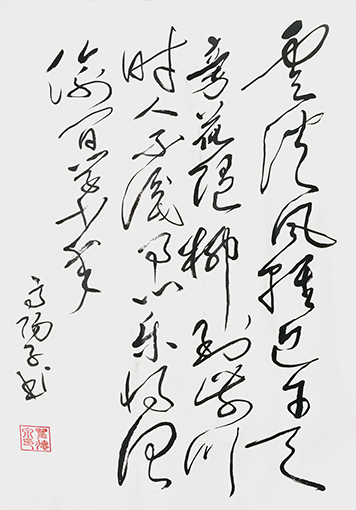 雲淡风轻近午天
旁花随柳到前川
时人不识予心乐将谓
偷闲学少年
高阳子书